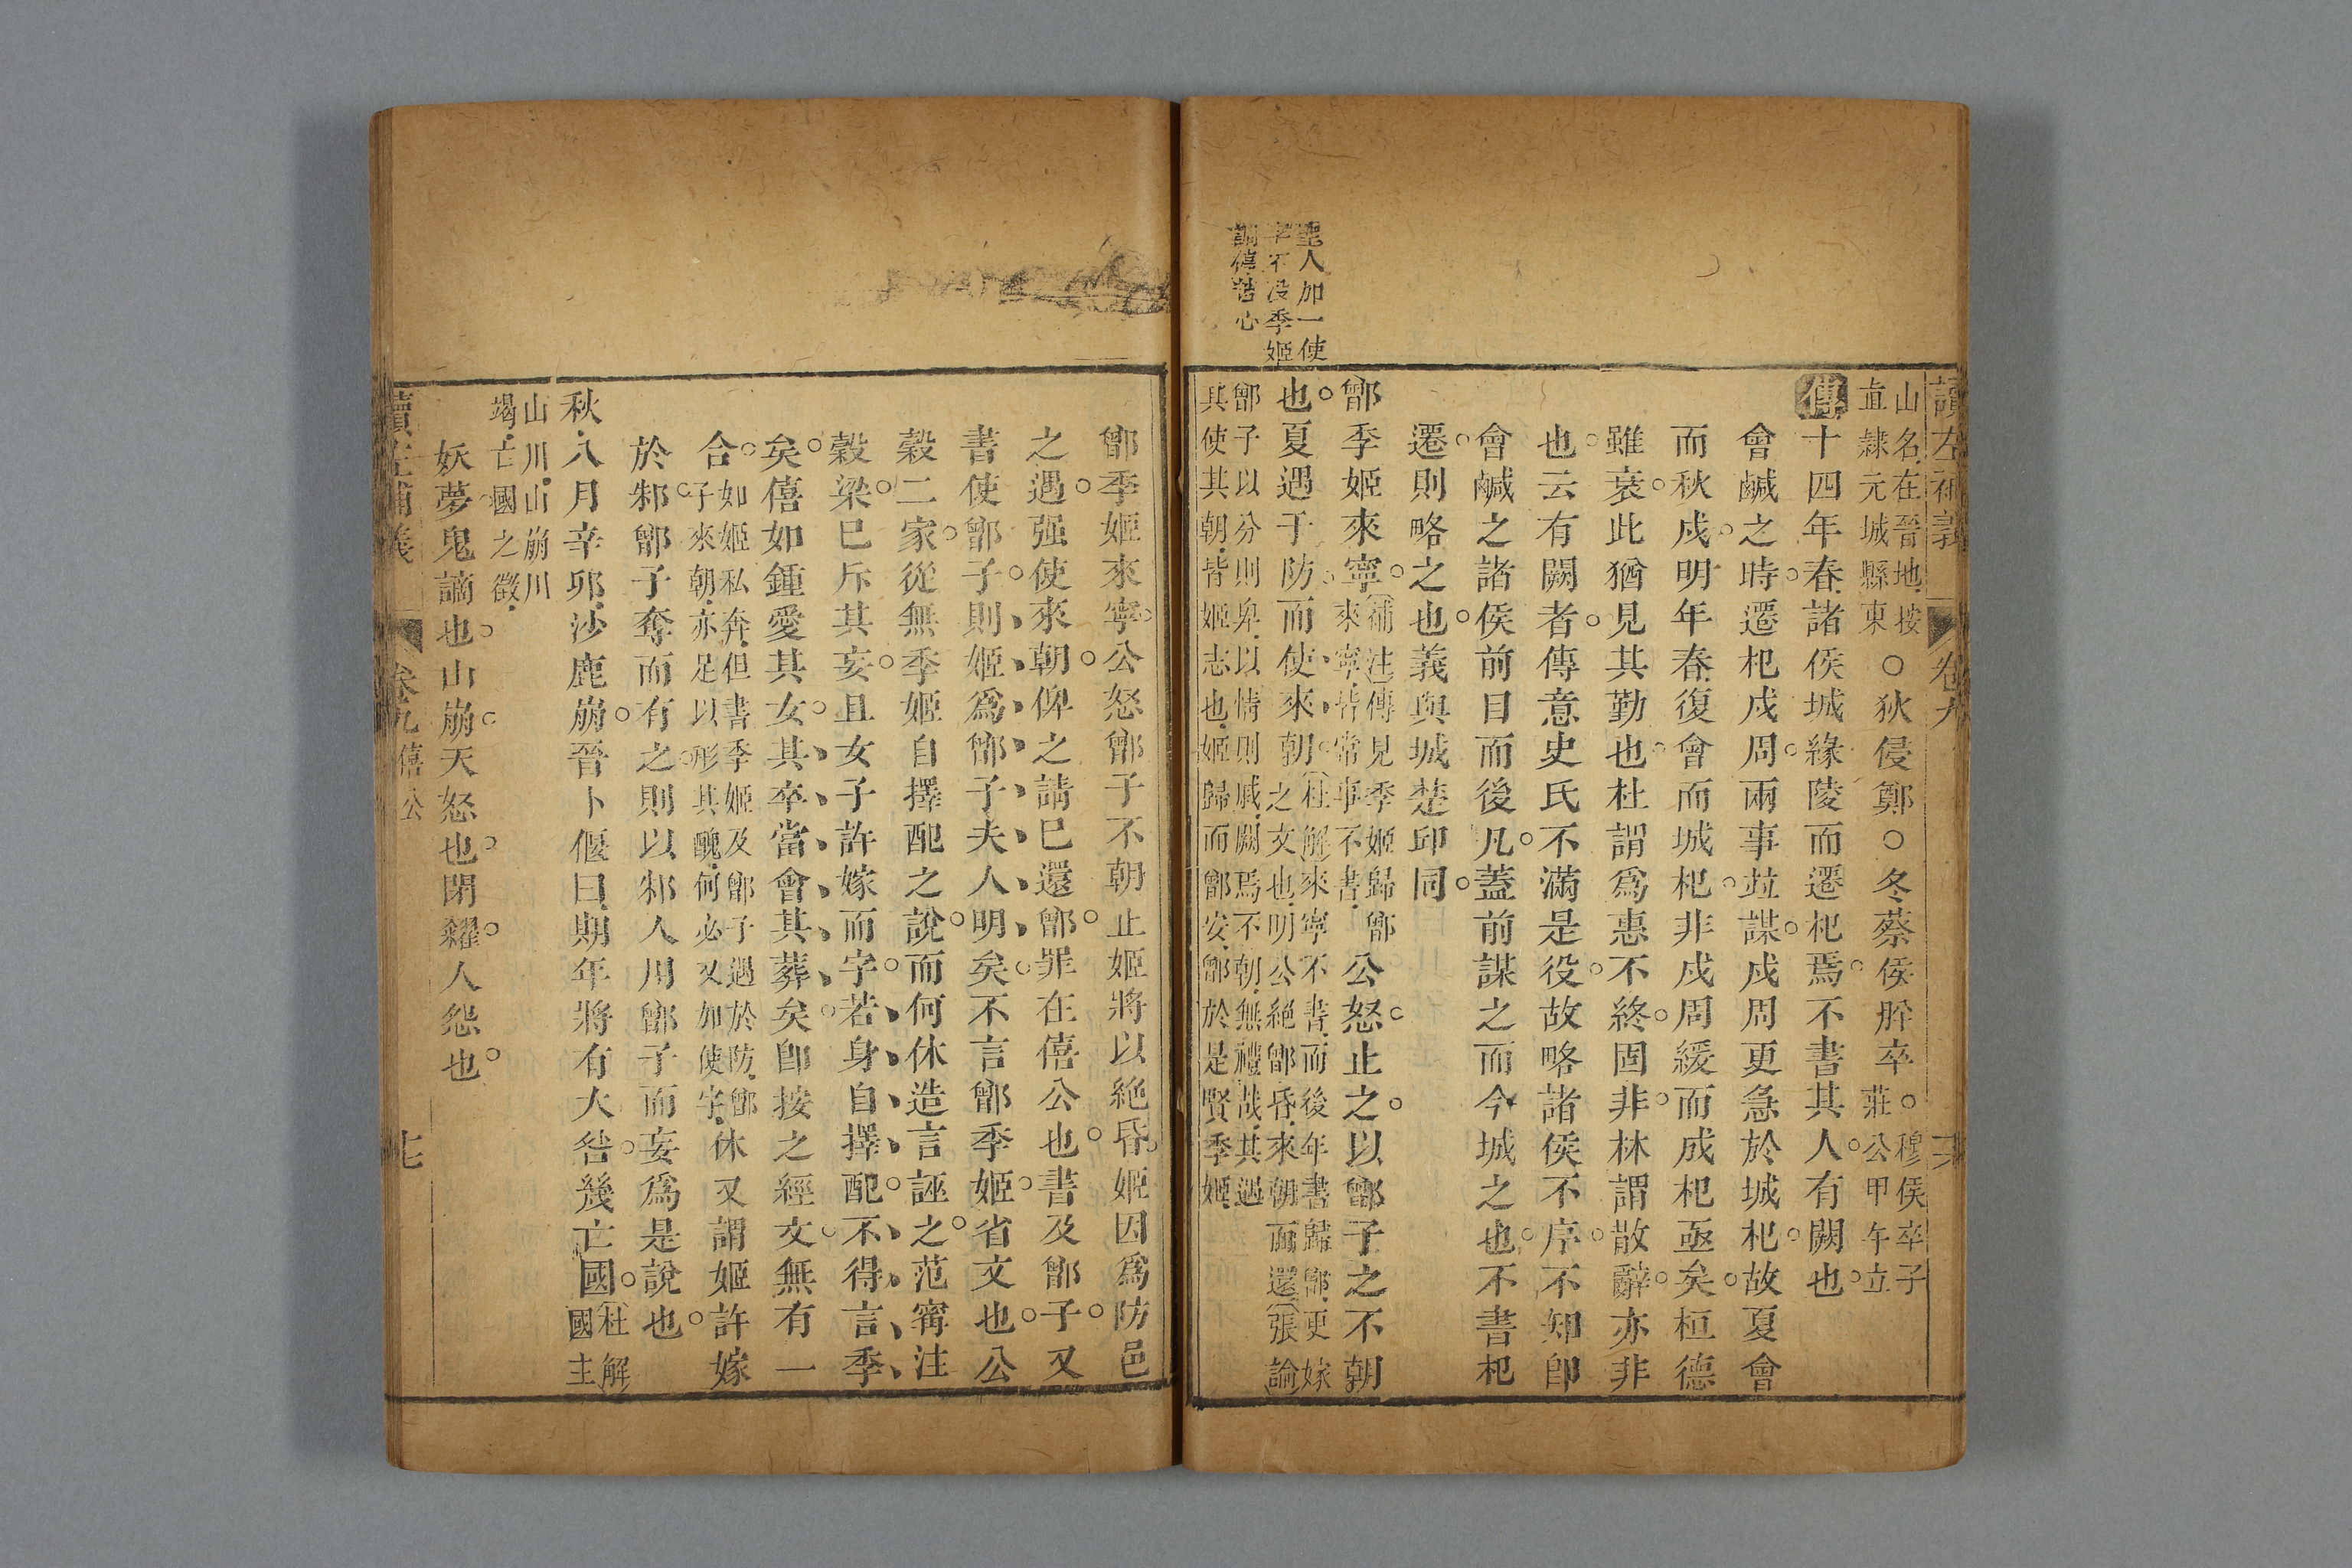 讀左補義 卷九
山名在晉地按直隸元城縣東○狄侵鄭○冬蔡侯肸卒○穆侯卒子莊公甲午立
傳十四年春諸侯城緣陵而遷杞焉不書其人有闕也
會鹹之時遷杞戍周兩事竝謀戍周更急於城杞故夏會
而秋戍明年春復會而城杞非戍周緩而成杞亟矣桓德
雖衰此猶見其勤也杜謂爲惠不終固非林謂散辭亦非
也云有闕者傳意史氏不滿是役故略諸侯不序不知卽
會鹹之諸侯前目而後凡蓋前謀之而今城之也不書杞
遷則略之也義與城楚邱同
鄫季姬來寧補注傳見季姬歸鄫來寧皆常事不書公怒止之以鄫子之不朝
也夏遇于防而使來朝杜解來寧不書而後年書歸鄫更嫁之文也明公絕鄫昏來朝而還張論
鄫子以分則卑以情則戚闕焉不朝無禮哉其遇其使其朝皆姬志也姬歸而鄫安鄫於是賢季姬
聖人加一使
字不没季姬
誚僖苦心
鄫季姬來寧公怒鄫子不朝止姬將以絕昏姬因爲防邑
之遇强使來朝俾之請巳還鄫罪在僖公也書及鄫子又
書使鄫子則姬爲鄫子夫人明矣不言鄫季姬省文也公
穀二家從無季姬自擇配之說而何休造言誣之范甯注
穀梁巳斥其妄且女子許嫁而字若身自擇配不得言季
矣僖如鍾愛其女其卒當會其葬矣卽按之經文無有一
合如姬私奔但書季姬及鄫子遇於防鄫子來朝亦足以形其醜何必又加使字休又謂姬許嫁
於邾鄫子奪而有之則以邾人用鄫子而妄爲是說也
秋八月辛卯沙鹿崩晉卜偃曰期年將有大咎幾亡國杜解國主
山川山崩川竭亡國之徵
妖夢鬼謫也山崩天怒也閉糴人怨也
讀左補義 卷九僖公 七